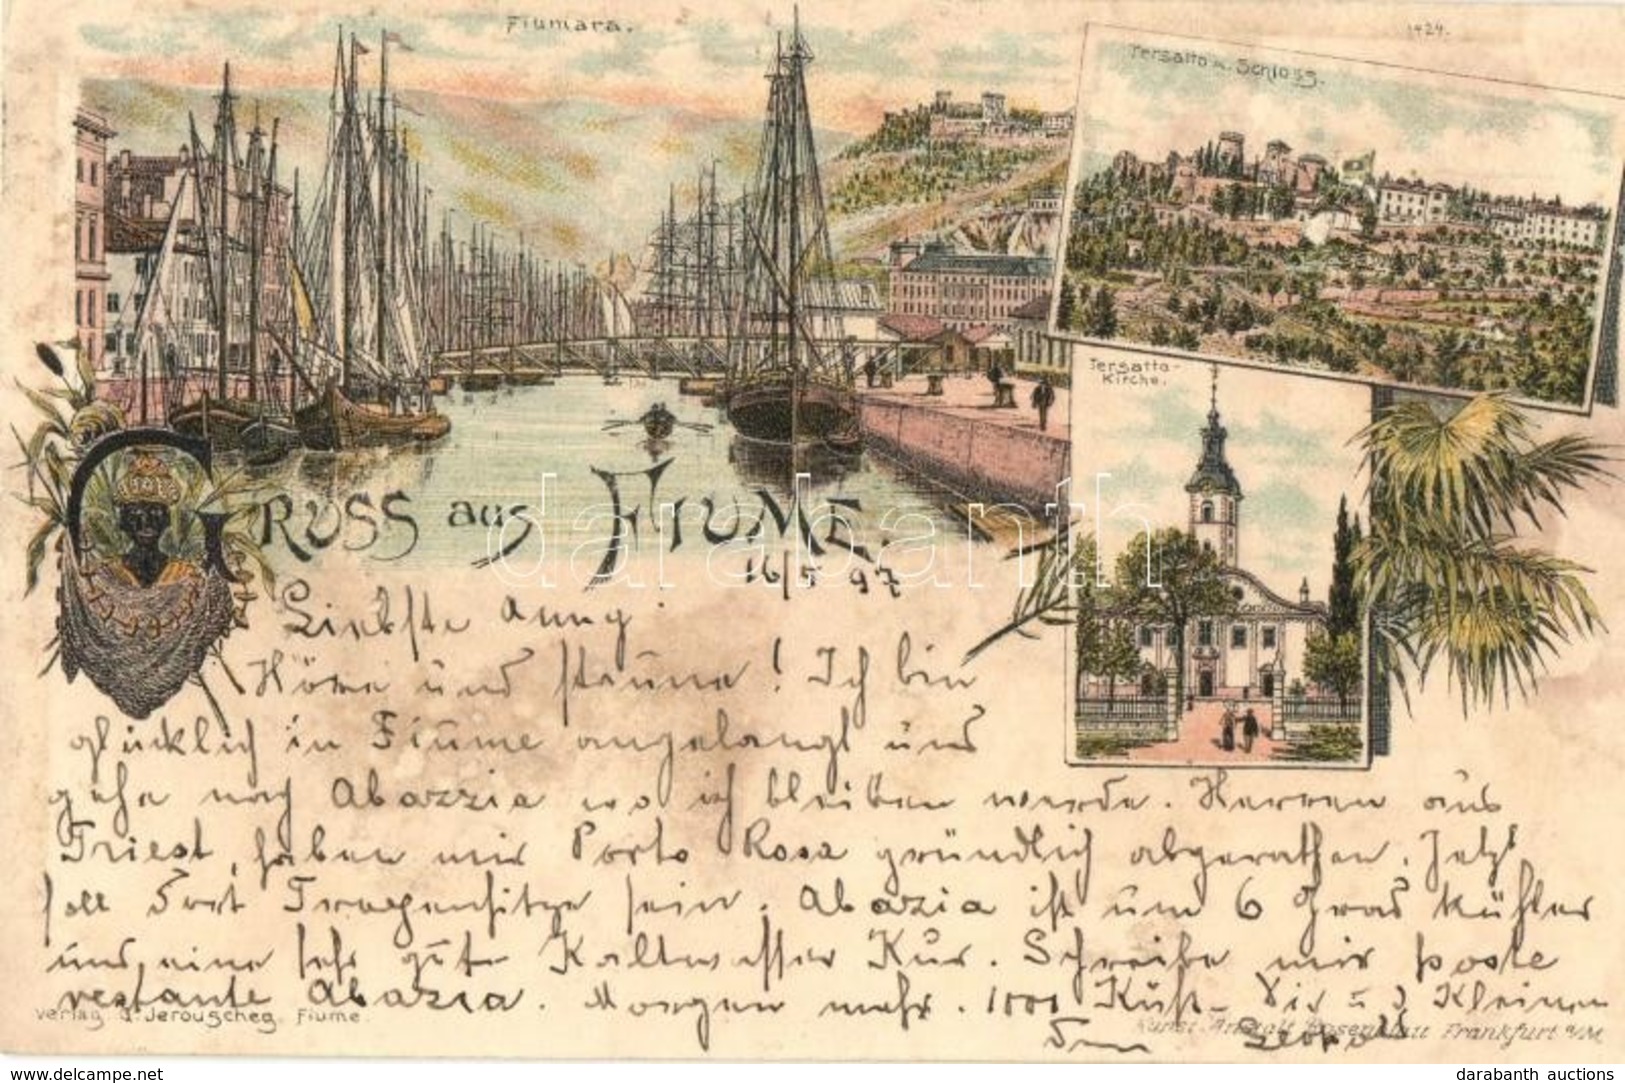 Fiumara.
1424.
Tersatto u. Schloss.
Tersatto-
Kirche.
GRUSS aus FIUME.
darabanth
16/5 97
Liebste Anny!
Höre und staune! Ich bin
glücklich in Fiume angelangt und
gehe nach Abazzia wo ich bleiben werde. Herren aus
Triest, haben mir Porto Rosa gründlich abgerathen. Jetzt
soll dort Tropenhitze sein. Abazia ist um 6 Grad kühler
und eine sehr gute Kaltwasser Kur. Schreibe mir poste
restante Abazia. Morgen mehr. 1000 Küss- Dir u d Kleinen
Verlag J. Jerouscheg, Fiume.
Kunst-Anstalt Rosenblatt Frankfurt a/M
Dein
CARTES POSTALES.net
darabanth auctions